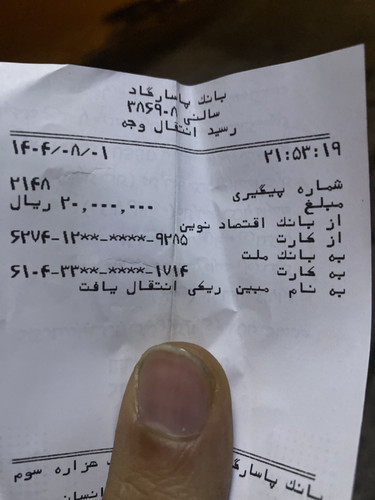 بانك پاسارگاد
سالنی ۳۸۶۹۰۸
رسید انتقال وجه
۱۴۰۴/۰۸/۰۱ ۲۱:۵۳:۱۹
شماره پیگیری ۲۱۴۸
مبلغ ۲۰,۰۰۰,۰۰۰ ریال
از بانك اقتصاد نوین
از کارت ۶۲۷۴-۱۲**-****-۹۲۸۵
به بانك ملت
به کارت ۶۱۰۴-۳۳**-****-۱۷۱۴
به نام مبین ریکی انتقال یافت
بانك پاسارگاد هزاره سوم
انسان